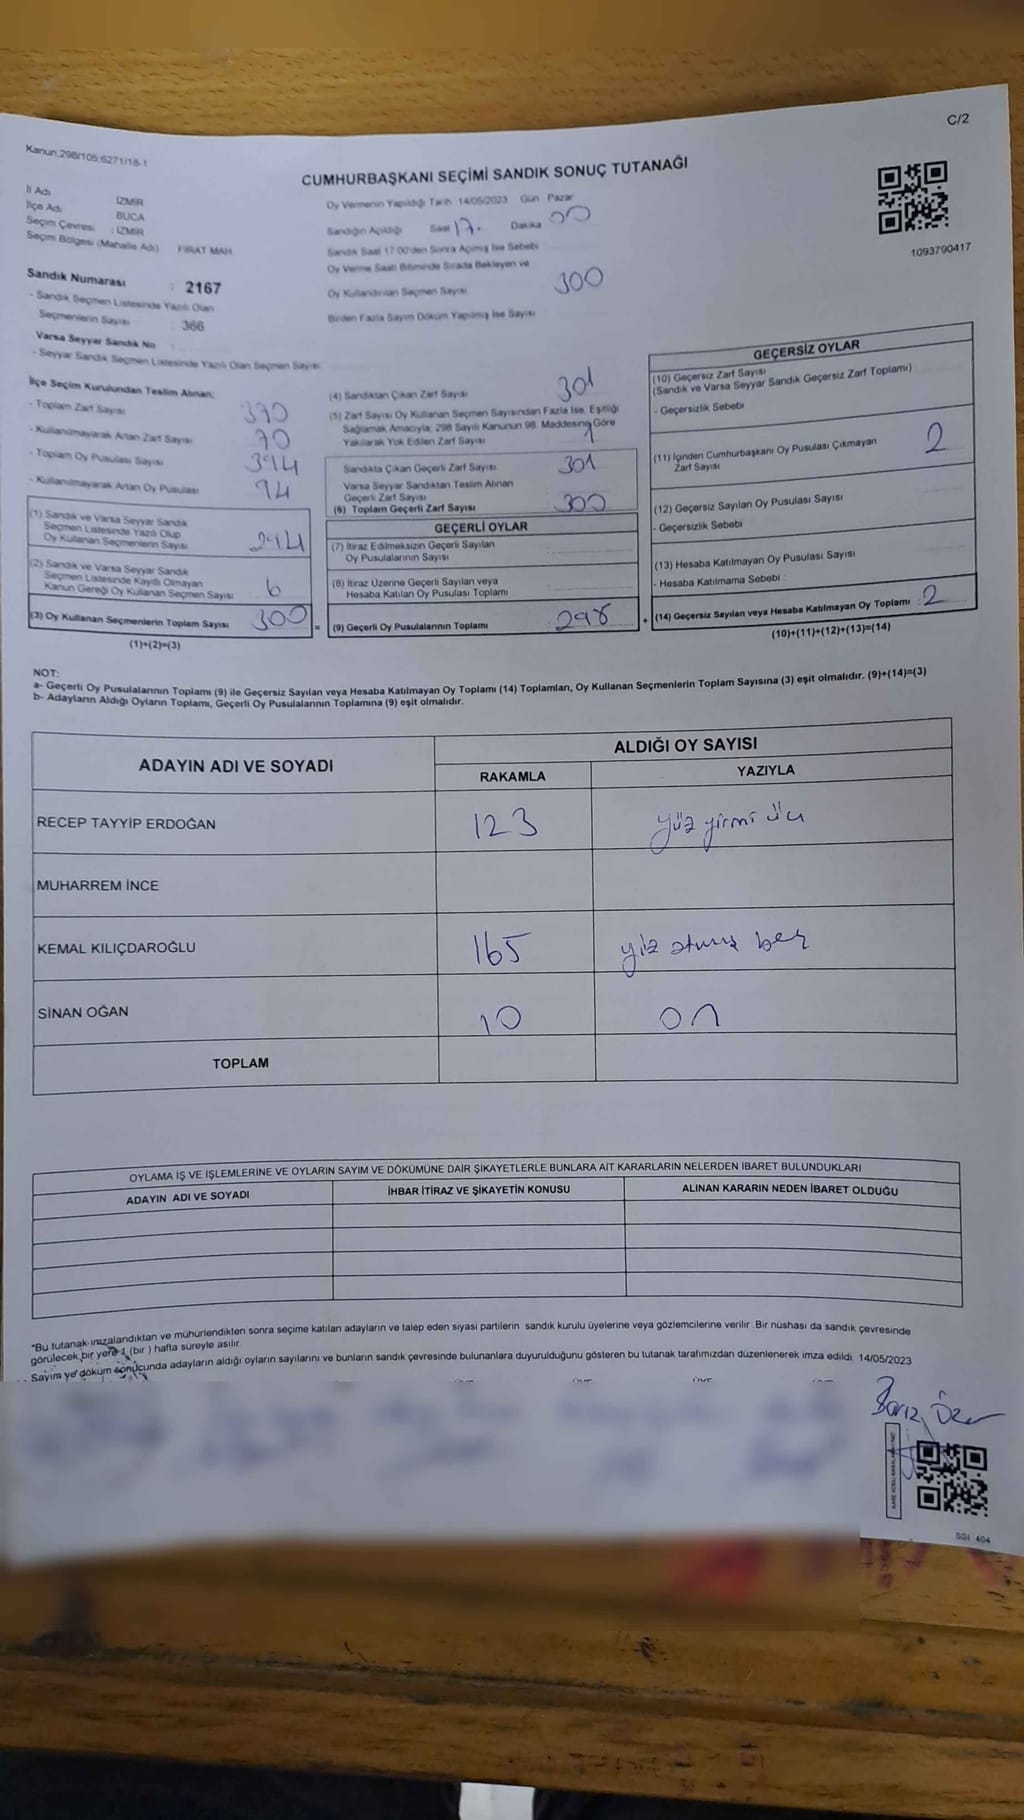 C/2
Kanun,298/105,6271/18-1
CUMHURBAŞKANI SEÇİMİ SANDIK SONUÇ TUTANAĞI
İl Adı İZMİR
İlçe Adı BUCA
Seçim Çevresi : İZMİR
Seçim Bölgesi (Mahalle Adı) FIRAT MAH
Sandık Numarası : 2167
- Sandık Seçmen Listesinde Yazılı Olan
Seçmenlerin Sayısı : 366
Varsa Seyyar Sandık No
- Seyyar Sandık Seçmen Listesinde Yazılı Olan Seçmen Sayısı
Oy Vermenin Yapıldığı Tarih 14/05/2023 Gün Pazar
Sandığın Açıldığı Saat 17. Dakika 00
Sandık Saat 17.00'den Sonra Açılmış İse Sebebi
Oy Verme Saati Bitiminde Sırada Bekleyen ve
Oy Kullandırılan Seçmen Sayısı 300
Birden Fazla Sayım Döküm Yapılmış İse Sayısı
1093790417
İlçe Seçim Kurulundan Teslim Alınan;
- Toplam Zarf Sayısı 370
- Kullanılmayarak Artan Zarf Sayısı 70
- Toplam Oy Pusulası Sayısı 394
- Kullanılmayarak Artan Oy Pusulası 94
(1) Sandık ve Varsa Seyyar Sandık
Seçmen Listesinde Yazılı Olup
Oy Kullanan Seçmenlerin Sayısı 294
(2) Sandık ve Varsa Seyyar Sandık
Seçmen Listesinde Kayıtlı Olmayan
Kanun Gereği Oy Kullanan Seçmen Sayısı 6
(3) Oy Kullanan Seçmenlerin Toplam Sayısı 300
(1)+(2)=(3)
(4) Sandıktan Çıkan Zarf Sayısı 301
(5) Zarf Sayısı Oy Kullanan Seçmen Sayısından Fazla İse, Eşitliği
Sağlamak Amacıyla, 298 Sayılı Kanunun 98. Maddesine Göre
Yakılarak Yok Edilen Zarf Sayısı 1
Sandıkta Çıkan Geçerli Zarf Sayısı 301
Varsa Seyyar Sandıktan Teslim Alınan
Geçerli Zarf Sayısı
(6) Toplam Geçerli Zarf Sayısı 300
GEÇERLİ OYLAR
(7) İtiraz Edilmeksizin Geçerli Sayılan
Oy Pusulalarının Sayısı
(8) İtiraz Üzerine Geçerli Sayılan veya
Hesaba Katılan Oy Pusulası Toplamı
= (9) Geçerli Oy Pusulalarının Toplamı : 298
GEÇERSİZ OYLAR
(10) Geçersiz Zarf Sayısı
(Sandık ve Varsa Seyyar Sandık Geçersiz Zarf Toplamı)
- Geçersizlik Sebebi
(11) İçinden Cumhurbaşkanı Oy Pusulası Çıkmayan
Zarf Sayısı 2
(12) Geçersiz Sayılan Oy Pusulası Sayısı
- Geçersizlik Sebebi
(13) Hesaba Katılmayan Oy Pusulası Sayısı
- Hesaba Katılmama Sebebi :
+ (14) Geçersiz Sayılan veya Hesaba Katılmayan Oy Toplamı : 2
(10)+(11)+(12)+(13)=(14)
NOT:
a- Geçerli Oy Pusulalarının Toplamı (9) ile Geçersiz Sayılan veya Hesaba Katılmayan Oy Toplamı (14) Toplamları, Oy Kullanan Seçmenlerin Toplam Sayısına (3) eşit olmalıdır. (9)+(14)=(3)
b- Adayların Aldığı Oyların Toplamı, Geçerli Oy Pusulalarının Toplamına (9) eşit olmalıdır.
ADAYIN ADI VE SOYADI ALDIĞI OY SAYISI
RAKAMLA YAZIYLA
RECEP TAYYİP ERDOĞAN 123 yüz yirmi üç
MUHARREM İNCE
KEMAL KILIÇDAROĞLU 165 yüz atmış beş
SİNAN OĞAN 10 on
TOPLAM
OYLAMA İŞ VE İŞLEMLERİNE VE OYLARIN SAYIM VE DÖKÜMÜNE DAİR ŞİKAYETLERLE BUNLARA AİT KARARLARIN NELERDEN İBARET BULUNDUKLARI
ADAYIN ADI VE SOYADI İHBAR İTİRAZ VE ŞİKAYETİN KONUSU ALINAN KARARIN NEDEN İBARET OLDUĞU
*Bu tutanak imzalandıktan ve mühürlendikten sonra seçime katılan adayların ve talep eden siyasi partilerin sandık kurulu üyelerine veya gözlemcilerine verilir .Bir nüshası da sandık çevresinde
görülecek bir yere 1 (bir ) hafta süreyle asılır
Sayım ve döküm sonucunda adayların aldığı oyların sayılarını ve bunların sandık çevresinde bulunanlara duyurulduğunu gösteren bu tutanak tarafımızdan düzenlenerek imza edildi. 14/05/2023
Barış Özer